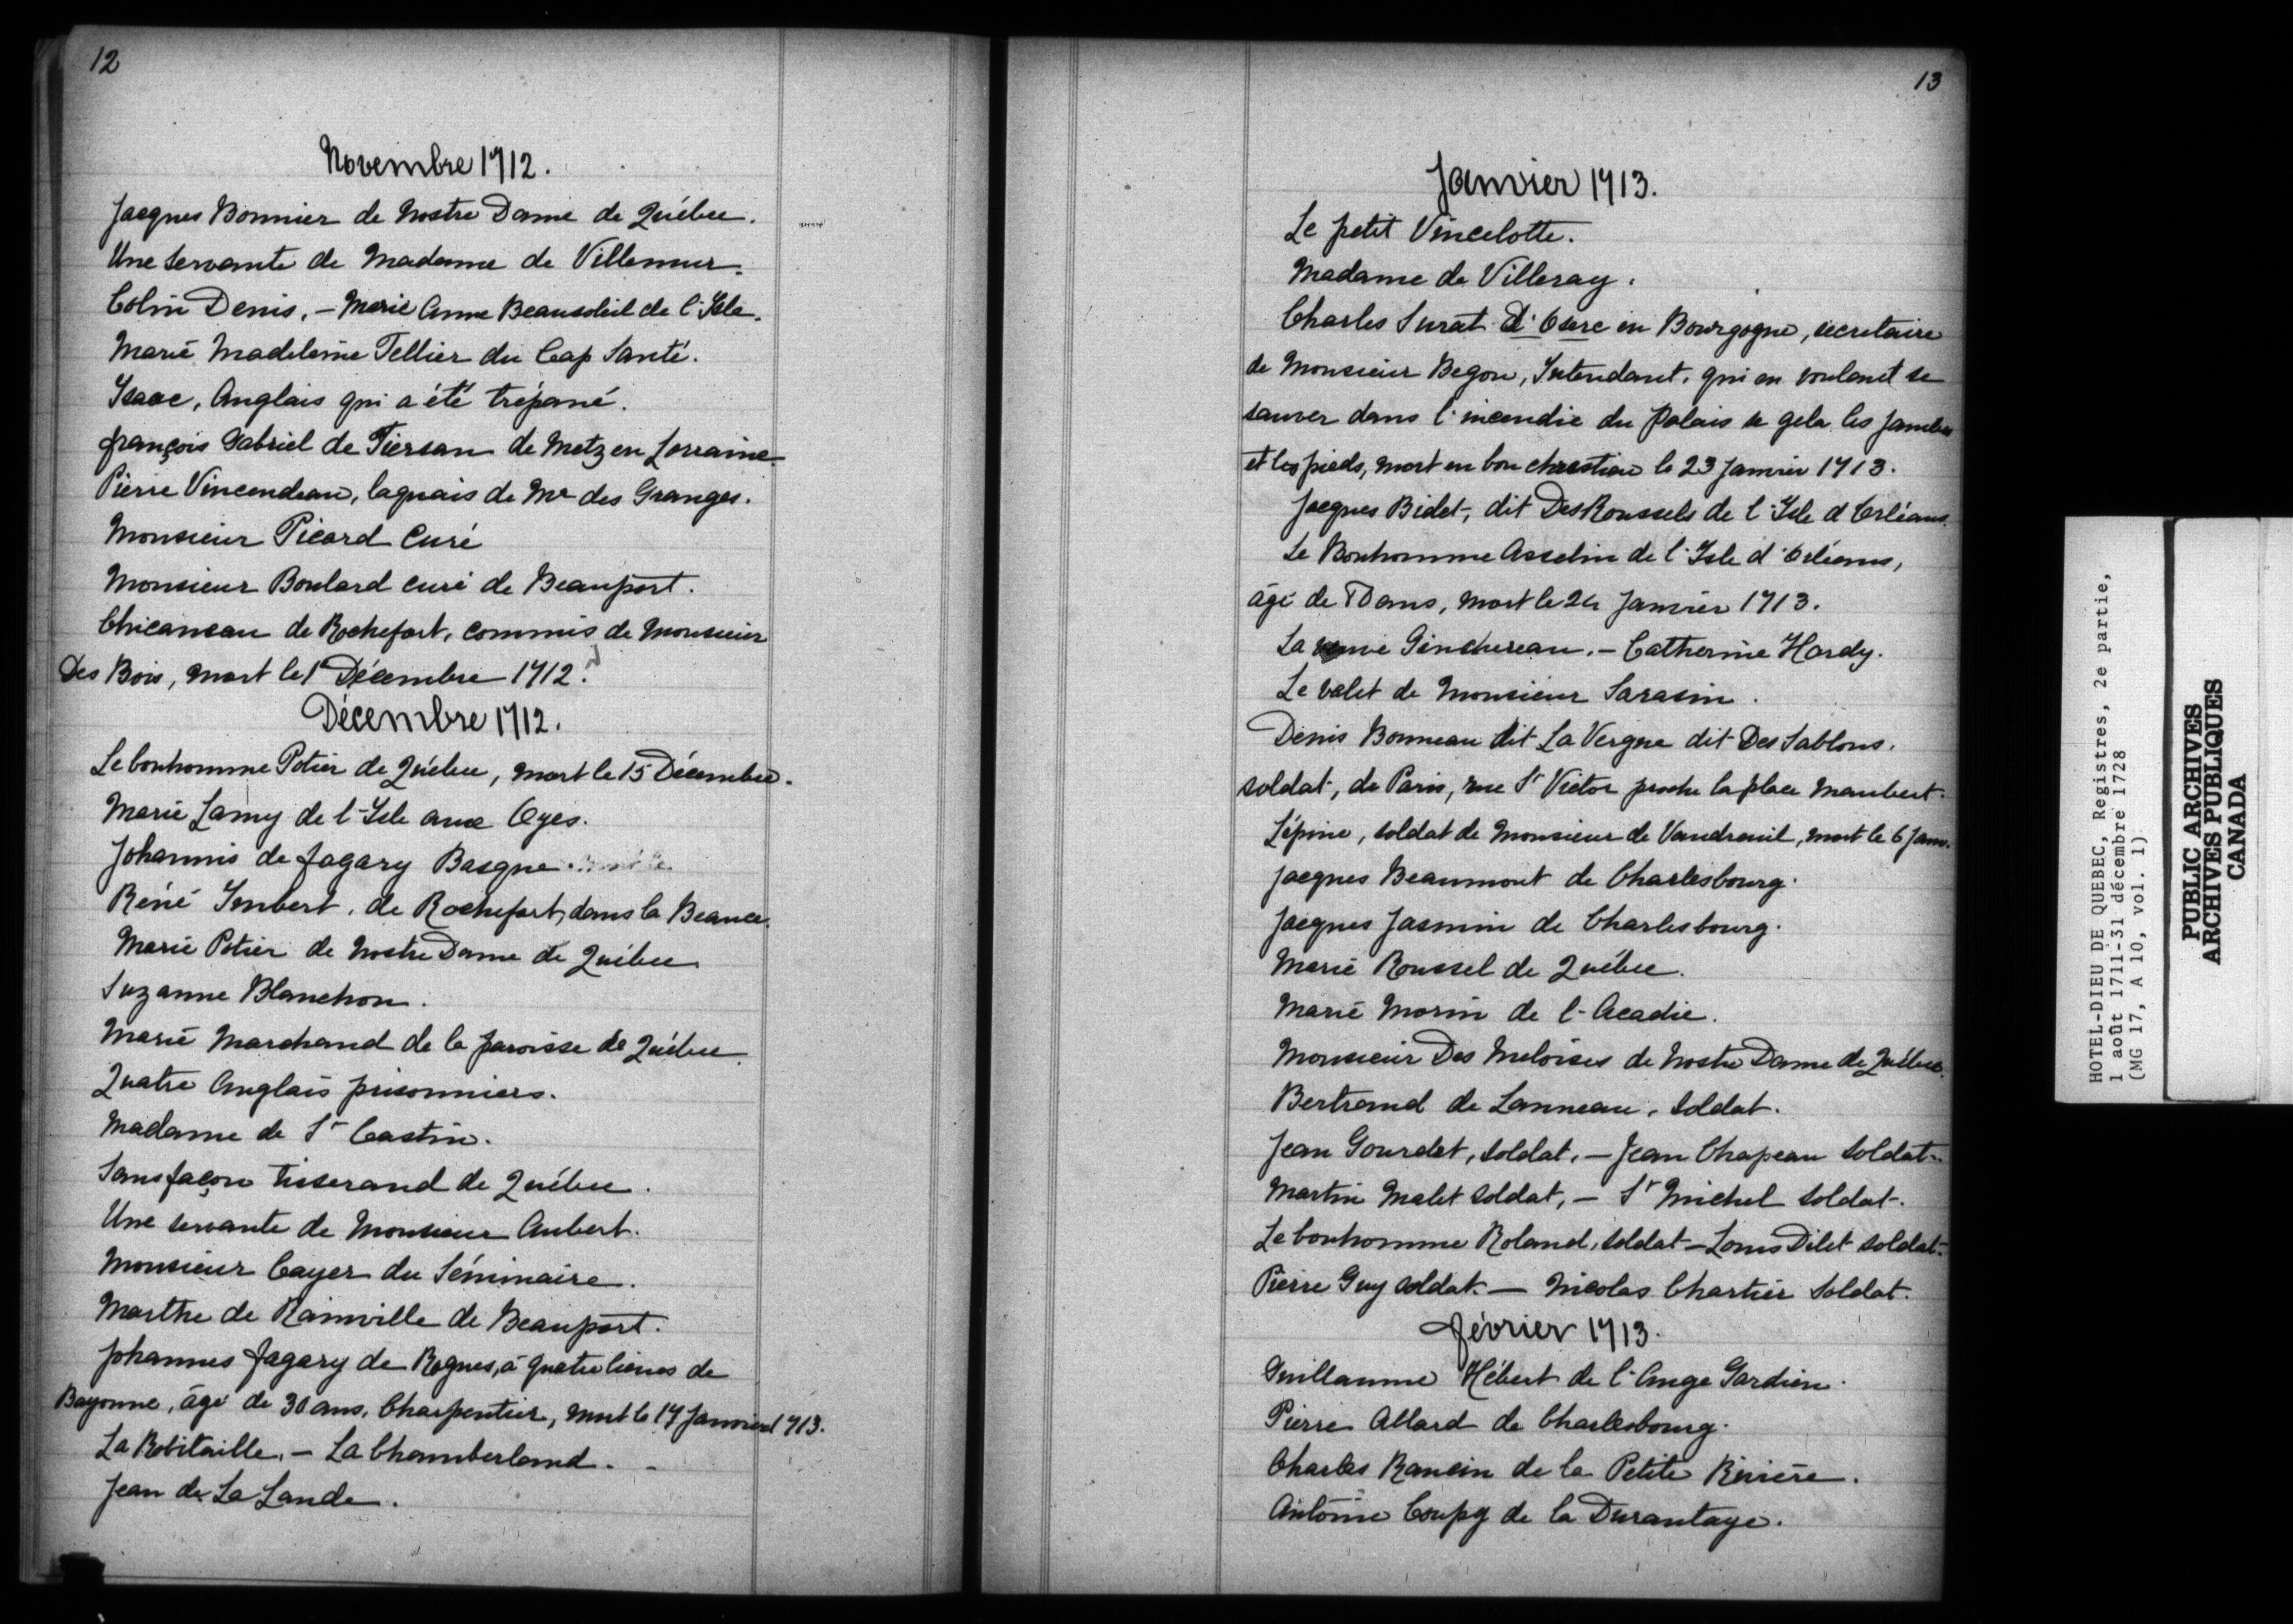 12
Novembre 1712.
Jacques Bonnier de Nostre Dame de Québec.
Une servante de Madame de Villemur.
Colin Denis. – Marie Anne Beausoleil de l'Isle.
Marie Madeleine Tellier du Cap Santé.
Isaac, Anglais qui a été trépané.
François Gabriel de Tiersan de Metz en Lorraine.
Pierre Vincendeau, laquais de Mr des Granges.
Monsieur Picard Curé
Monsieur Boulard curé de Beauport.
Chicaneau de Rochefort, commis de Monsieur
Des Bois, mort le 1 Décembre 1712.
Décembre 1712.
Le bonhomme Potier de Québec, mort le 15 Décembre.
Marie Lamy de l'Isle aux Oyes.
Johannis de Jagary Basque.
Réné Imbert, de Rochefort, dans la Beauce.
Marie Potier de Nostre Dame de Québec.
Suzanne Blanchon.
Marie Marchand de la paroisse de Québec.
Quatre Anglais prisonniers.
Madame de St Castin.
Sansfaçon tisserand de Québec.
Une servante de Monsieur Aubert.
Monsieur Cayer du Séminaire.
Marthe de Rainville de Beauport.
Johannes Jagary de Rognes, à quatre lieues de
Bayonne, âgé de 30 ans, Charpentier, mort le 17 Janvier 1713.
La Robitaille. – La Chamberland.
Jean de La Lande.
13
Janvier 1713.
Le petit Vincelotte.
Madame de Villeray.
Charles Surat d'Osere en Bourgogne, secretaire
de Monsieur Begon, Intendant, qui en voulant se
sauver dans l'incendie du Palais se gela les jambes
et les pieds, mort en bon chrestien le 23 Janvier 1713.
Jacques Bidet, dit Des Roussels de l'Isle d'Orléans.
Le Bonhomme Asselin de l'Isle d'Orléans,
âgé de ans, mort le 24 Janvier 1713.
La veuve Ginchereau. – Catherine Hardy.
Le valet de Monsieur Sarasin.
Denis Bonneau dit La Vergne dit Des Sablons.
soldat, de Paris, rue St Victor proche la place Maubert.
Lépine, soldat de Monsieur de Vaudreuil, mort le 6 Janv.
Jacques Beaumont de Charlesbourg.
Jacques Jasmin de Charlesbourg.
Marie Roussel de Québec.
Marie Morin de l'Acadie.
Monsieur Des Meloises de Nostre Dame de Québec.
Bertrand de Lanneau, soldat.
Jean Gourdet, soldat. – Jean Chapeau soldat.
Martin Malet soldat, – St Michel soldat.
Le bonhomme Roland, soldat – Louis Dilet soldat.
Pierre Guy soldat. – Nicolas Chartier soldat.
Février 1713.
Guillaume Hébert de l'Ange Gardien.
Pierre Allard de Charlesbourg.
Charles Rancin de la Petite Rivière.
Antoine Coupy de la Durantaye.
HOTEL-DIEU DE QUEBEC, Registres, 2e partie,
1 août 1711-31 décembre 1728
(MG 17, A 10, vol. 1)
PUBLIC ARCHIVES
ARCHIVES PUBLIQUES
CANADA